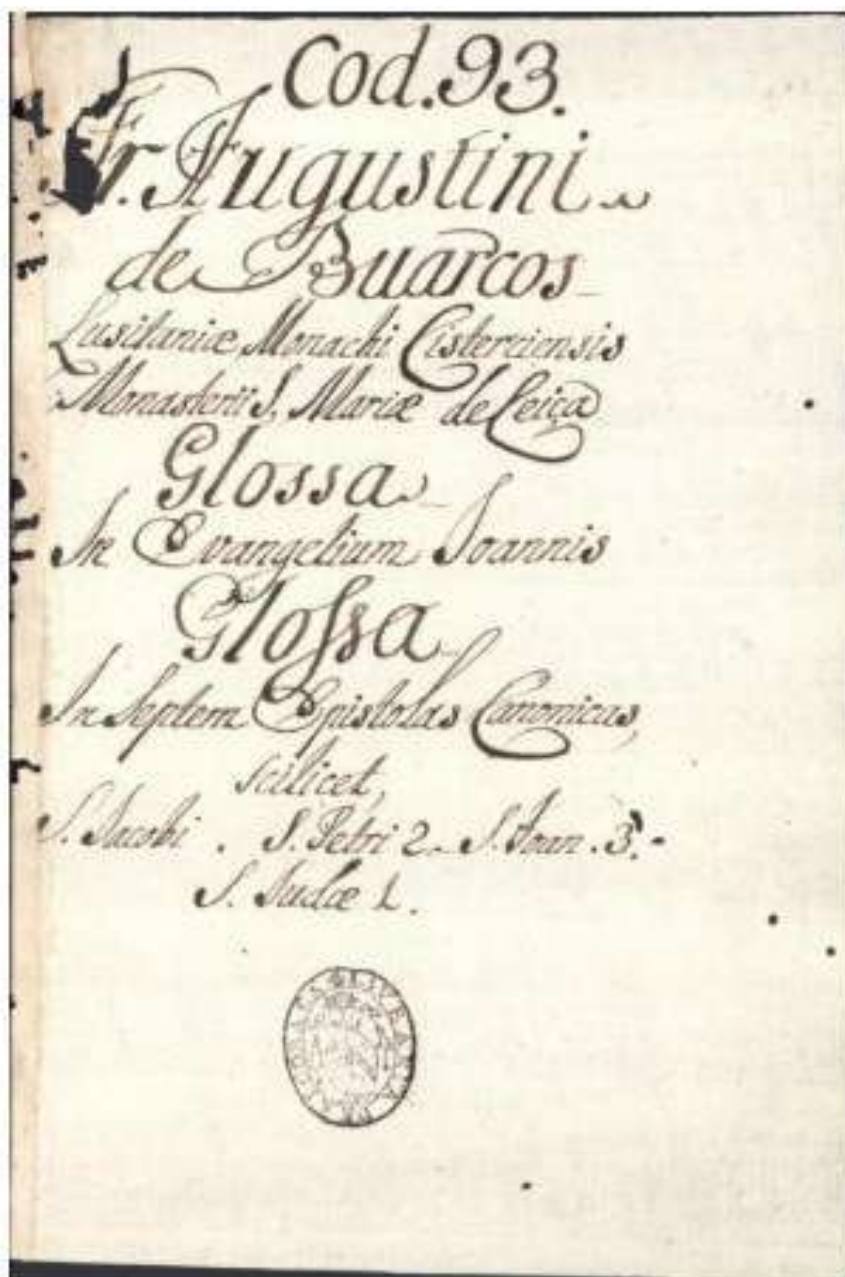 Cod. 93.
Fr. Augustini
de Buarcos
Lusitaniæ Monachi Cisterciensis
Monasterii S. Mariæ de Ceiça
Glossa
In Evangelium Joannis
Glossa
In Septem Epistolas Canonicas,
scilicet,
S. Jacobi . S. Petri 2. S. Joan. 3.
S. Judæ 1.